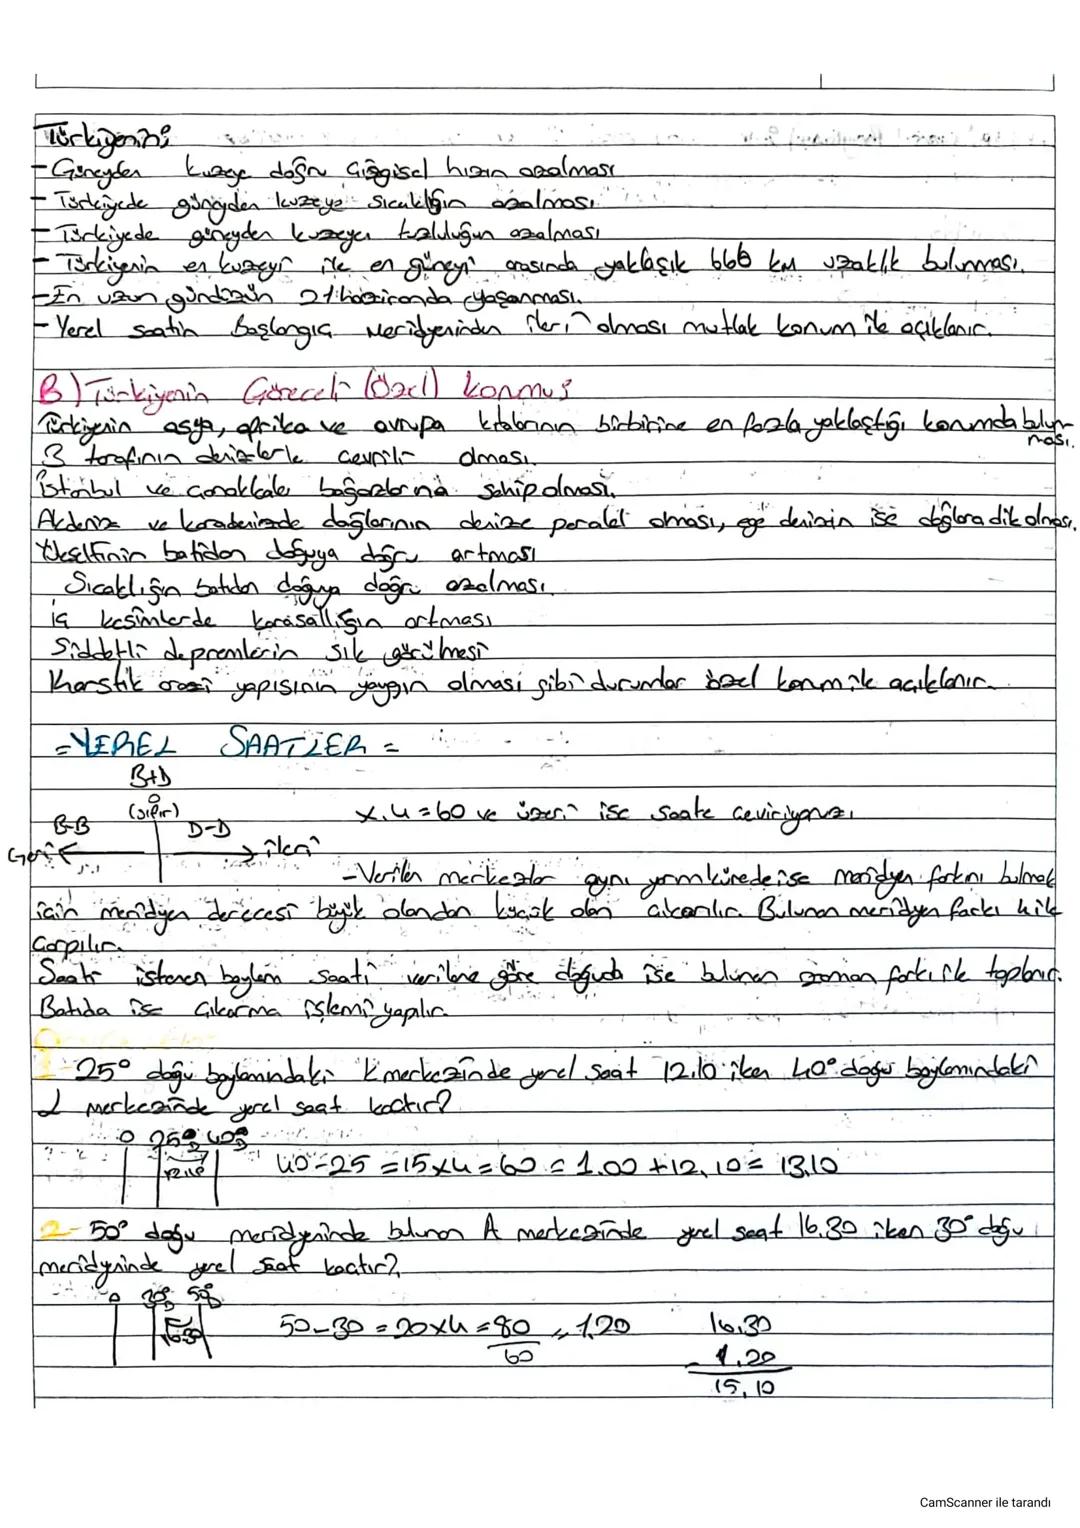 Türkiyenin;
- Güneyden kuzeye doğru Çizgisel hızın azalması
- Türkiyede güneyden kuzeye sıcaklığın azalması
- Türkiyede güneyden kuzeye tuzluluğun azalması
- Türkiyenin en kuzeyi ile en güneyi arasında yaklaşık 666 km uzaklık bulunması.
- En uzun gündüzün 21 haziranda yaşanması.
- Yerel saatin Başlangıç Meridyeninden ileri olması mutlak konum ile açıklanır.
B) Türkiyenin Göreceli (Özel) konmuş
Türkiyenin asya, afrika ve avrupa kıtalarının birbirine en fazla yaklaştığı konumda bulunması.
3 tarafının denizlerle çevrili olması.
İstanbul ve Çanakkale boğazlarına sahip olması.
Akdeniz ve karadenizde dağlarının denize paralel olması, ege denizin ise dağlara dik olması.
Yükseltinin batıdan doğuya doğru artması
Sıcaklığın batıdan doğuya doğru azalması.
iç kesimlerde karasallığın artması
Şiddetli depremlerin sık görülmesi
Karstik arazi yapısının yaygın olması gibi durumlar özel konm ile açıklanır.
= YEREL SAATLER =
B+D
(sıfır)
B-B D-D
Geri ileri
x.4=60 ve üzeri ise saate çeviriyoruz.
- Verilen merkezler aynı yarımkürede ise meridyen farkını bulmak
için meridyen derecesi büyük olandan küçük olan çıkarılır. Bulunan meridyen farkı 4 ile
Çarpılır.
Saati istenen boylam saati verilene göre doğuda ise bulunan zaman farkı ile toplanır.
Batıda ise Çıkarma işlemi yapılır.
1- 25° doğu boylamındaki K merkezinde yerel saat 12.10 iken 40° doğu boylamındaki
L merkezinde yerel saat kaçtır?
0 25°D 40°D
12.10
40-25=15x4=60=1.00+12,10=13.10
2- 50° doğu meridyeninde bulunan A merkezinde yerel saat 16.30 iken 30° doğu
meridyeninde yerel saat kaçtır?
0 30°D 50°D
16.30
50-30=20x4=80/60=1.20
16.30
- 1.20
15,10
CamScanner ile tarandı